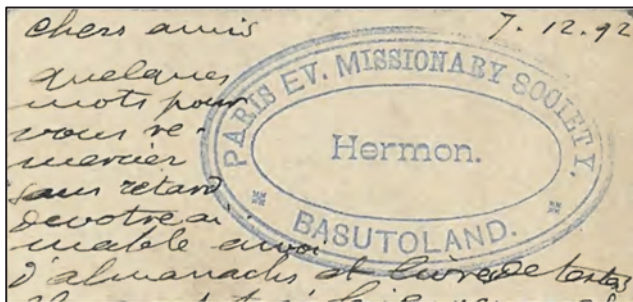 chers amis
7.12.92
quelques
mots pour
vous re-
mercier
sans retard
de votre ai-
mable envoi
d'almanachs et livres de textes
PARIS EV. MISSIONARY SOCIETY.
Hermon.
BASUTOLAND.